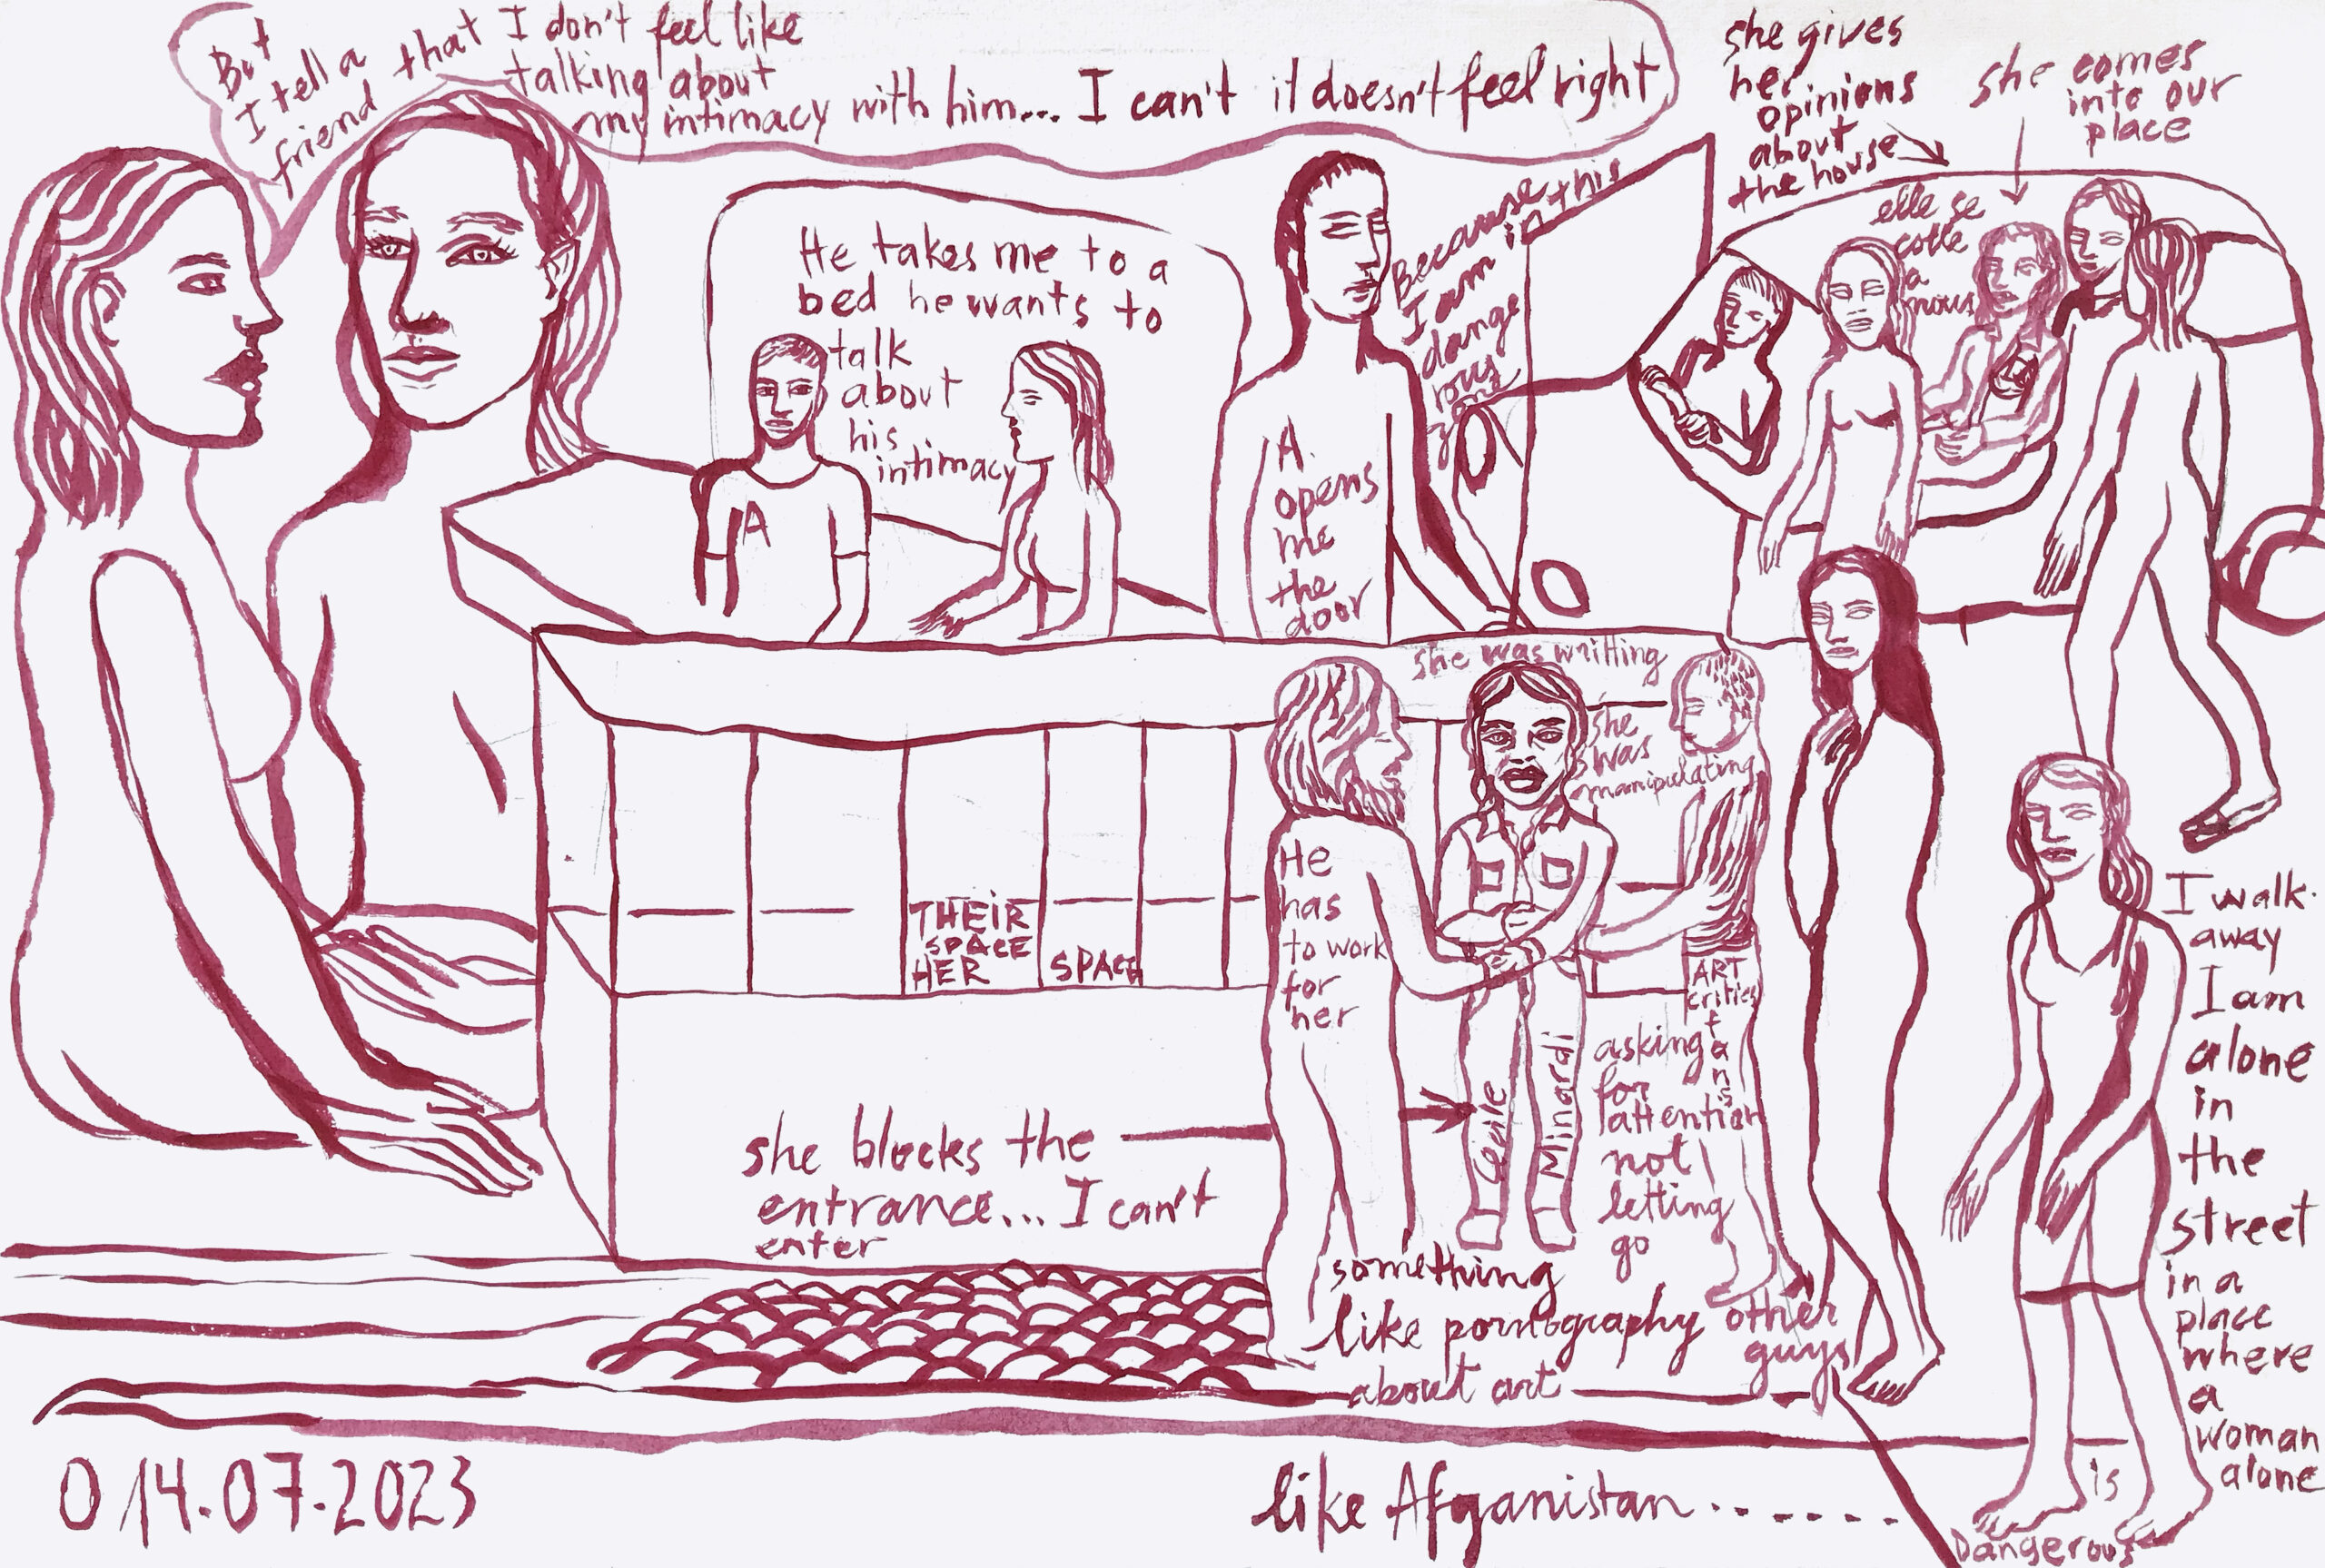 But
I tell a
friend
that I don't feel like
talking about
my intimacy with him... I can't it doesn't feel right
He takes me to a
bed he wants to
talk
about
his
intimacy
A
A
opens
me
the
door
Because
I am in this
dange
rous
zone
she gives
her
opinions
about
the house
she comes
into our
place
elle se
colle
a
nous
she was writting
she
was
manipulating
He
has
to work
for
her
THEIR
SPACE
HER SPACE
she blocks the
entrance... I can't
enter
Minardi
ART
critics
fans
asking
for
attention
not
letting
go
something
like pornography
about art
other
guys
I walk
away
I am
alone
in
the
street
in a
place
where
a
woman
alone
is
Dangerous
like Afganistan.......
014.07.2023